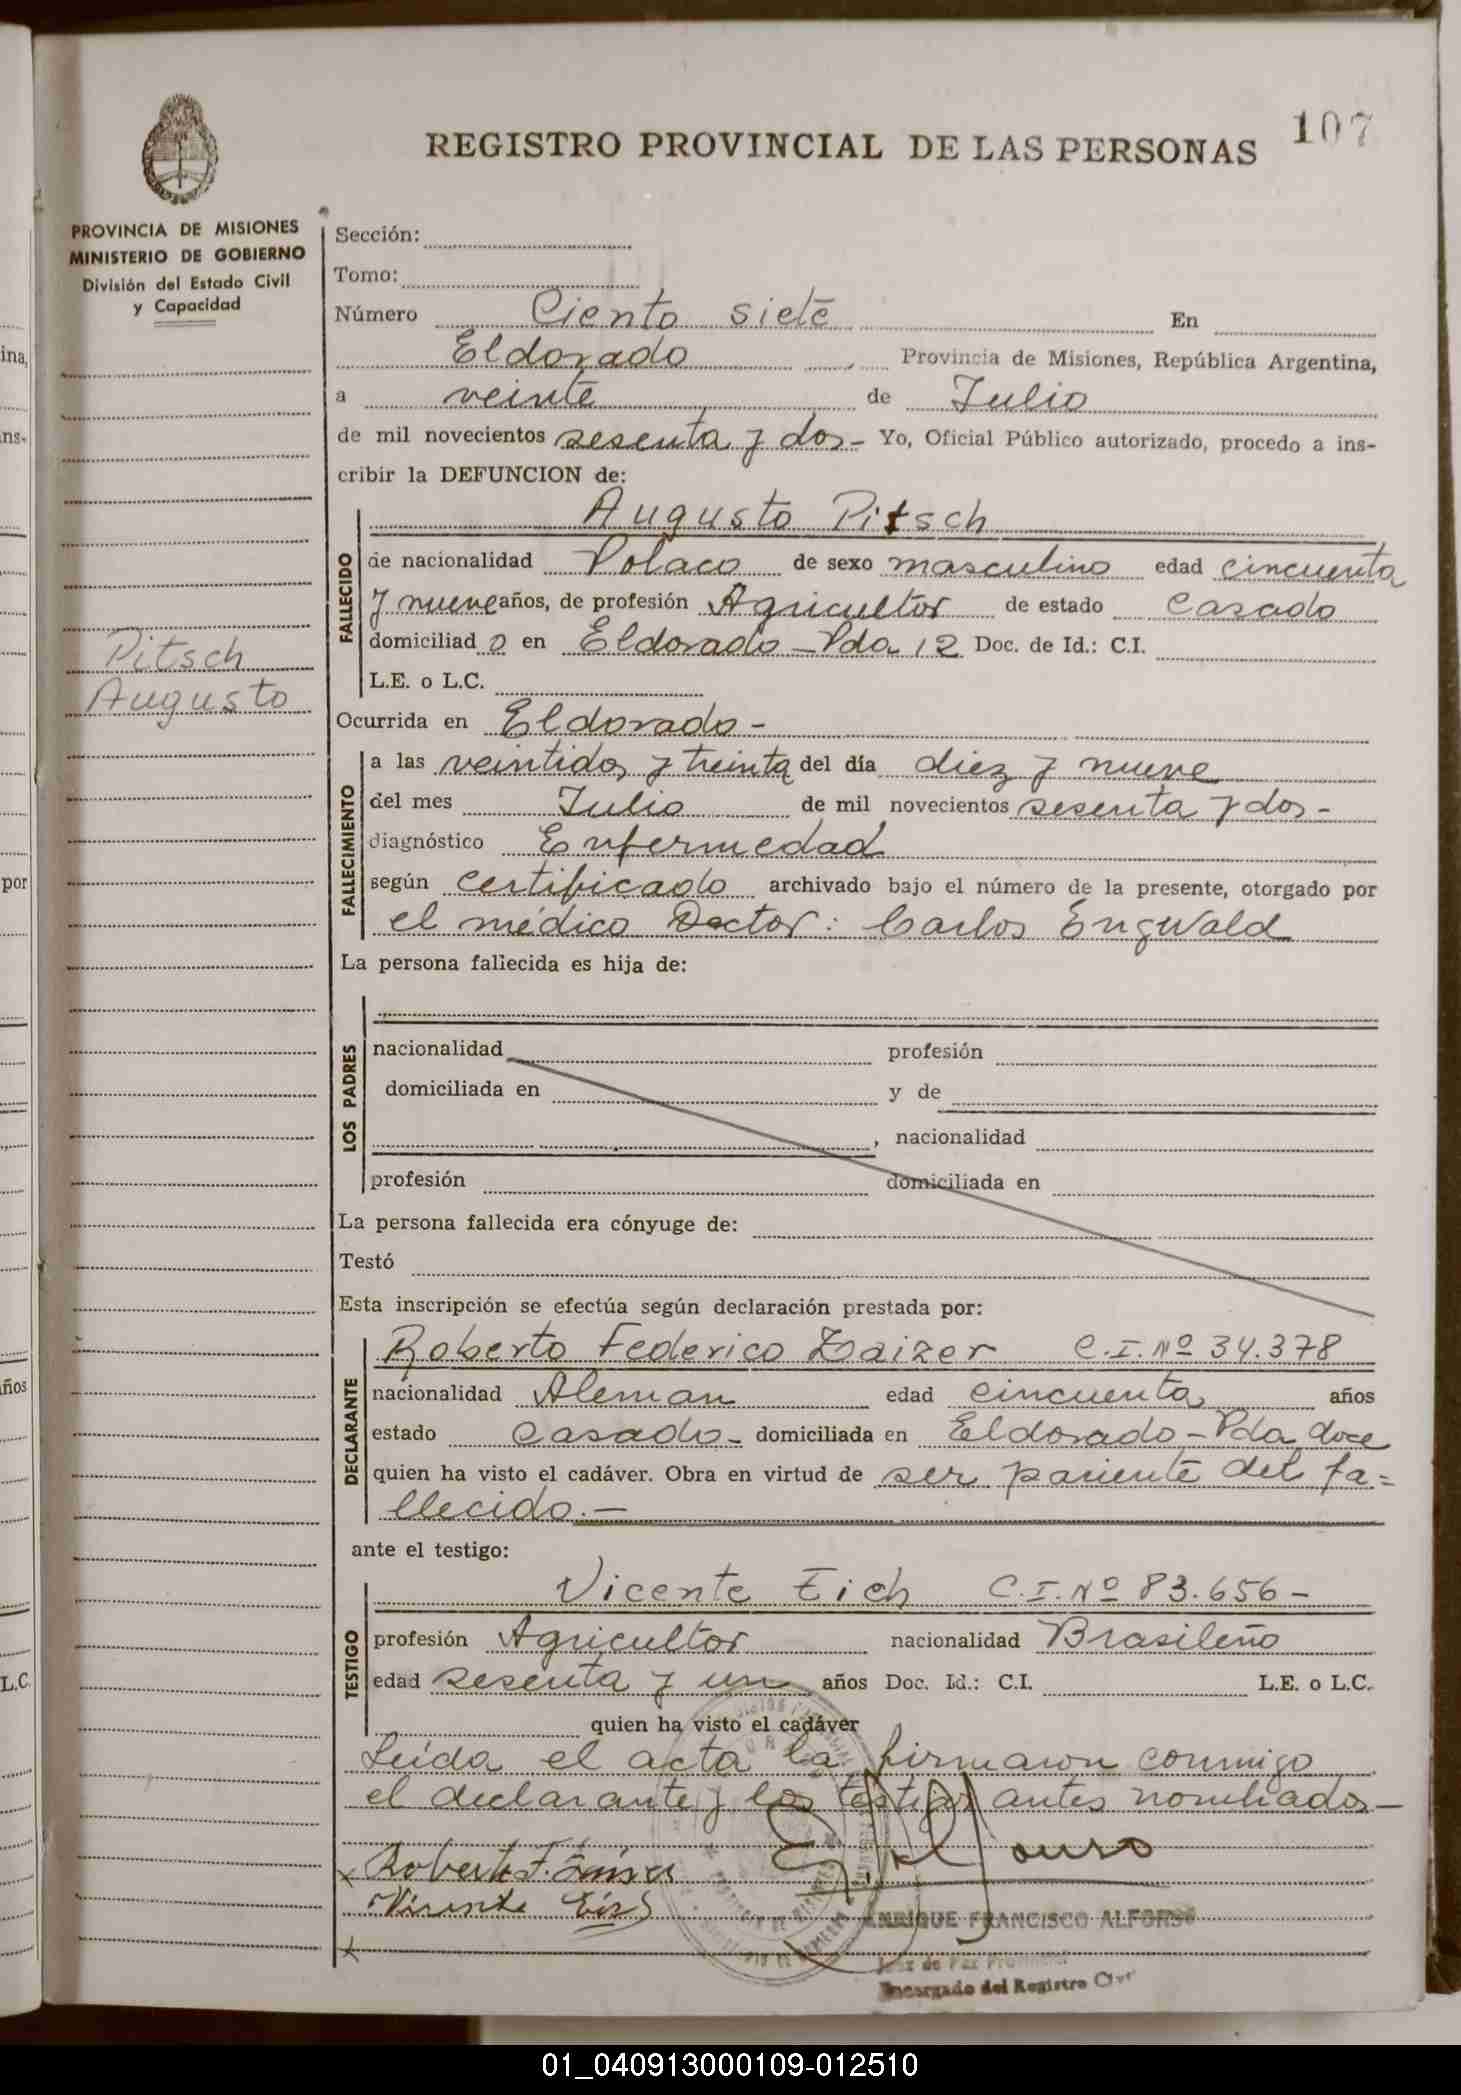 107
REGISTRO PROVINCIAL DE LAS PERSONAS
PROVINCIA DE MISIONES
MINISTERIO DE GOBIERNO
División del Estado Civil
y Capacidad
Pitsch
Augusto
Sección:
Tomo:
Número Ciento siete En
Eldorado Provincia de Misiones, República Argentina,
a veinte de Julio
de mil novecientos sesenta y dos - Yo, Oficial Público autorizado, procedo a ins-
cribir la DEFUNCION de:
Augusto Pitsch
FALLECIDO
de nacionalidad Polaco de sexo masculino edad cincuenta
y nueve años, de profesión Agricultor de estado Casado
domiciliad o en Eldorado - Pda 12 Doc. de Id.: C.I.
L.E. o L.C.
Ocurrida en Eldorado -
FALLECIMIENTO
a las veintidos y treinta del día diez y nueve
del mes Julio de mil novecientos sesenta y dos -
diagnóstico Enfermedad
según certificado archivado bajo el número de la presente, otorgado por
el médico Doctor: Carlos Engwald
La persona fallecida es hija de:
LOS PADRES
nacionalidad profesión
domiciliada en y de
, nacionalidad
profesión domiciliada en
La persona fallecida era cónyuge de:
Testó
Esta inscripción se efectúa según declaración prestada por:
DECLARANTE
Roberto Federico Zaizer C.I. Nº 34.378
nacionalidad Aleman edad cincuenta años
estado Casado - domiciliada en Eldorado - Pda doce
quien ha visto el cadáver. Obra en virtud de ser pariente del fa=
llecido. -
ante el testigo:
TESTIGO
Vicente Eich C.I. Nº 83.656 -
profesión Agricultor nacionalidad Brasileño
edad sesenta y un años Doc. Id.: C.I. L.E. o L.C.
quien ha visto el cadáver
Leida el acta la firmaron conmigo
el declarante y los testigos antes nombrados -
x Roberto F.
Vicente Eich
x
ENRIQUE FRANCISCO ALFONSO
Juez de Paz Provincial
Encargado del Registro Civil
ina,
ns-
por
ños
L.C.
01_040913000109-012510